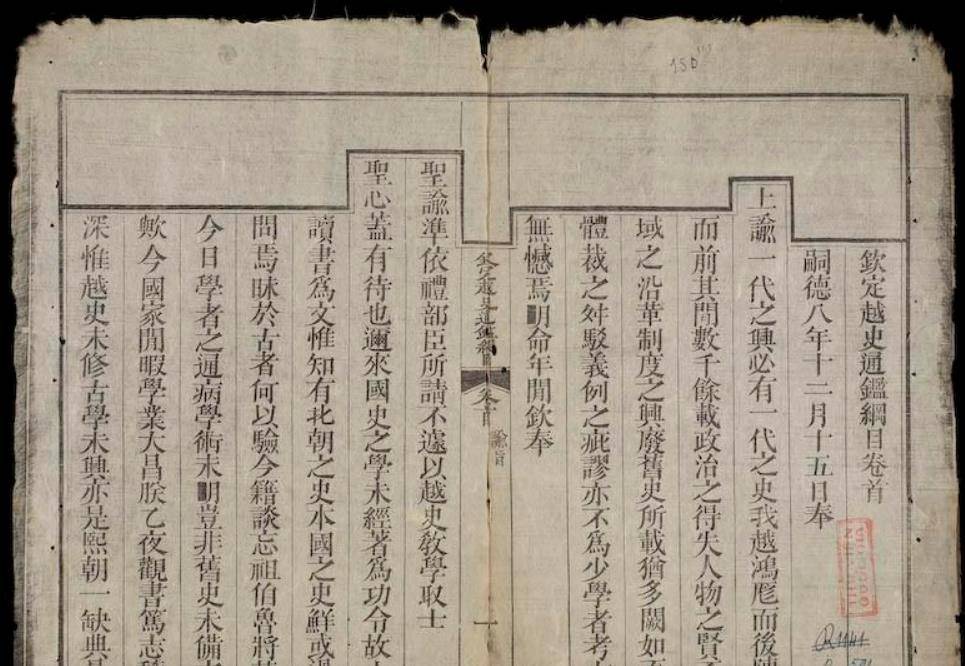 150
欽定越史通鑑綱目卷首
嗣德八年十二月十五日奉
上諭一代之興必有一代之史我越鴻厖而後
而前其間數千餘載政治之得失人物之賢
域之沿革制度之興廢舊史所載猶多闕如
體裁之舛駁義例之疵謬亦不爲少學者考
無憾焉明命年閒欽奉
欽定越史通鑑綱目
卷首
諭旨
一
聖諭準依禮部臣所請不遽以越史敎學取士
聖心蓋有待也邇來國史之學未經著爲功令故
讀書爲文惟知有北朝之史本國之史鮮或
問焉昧於古者何以驗今籍談忘祖伯魯將
今日學者之通病學術未明豈非舊史未備
歟今國家閒暇學業大昌朕乙夜觀書篤志
深惟越史未修古學未興亦是熙朝一缺典